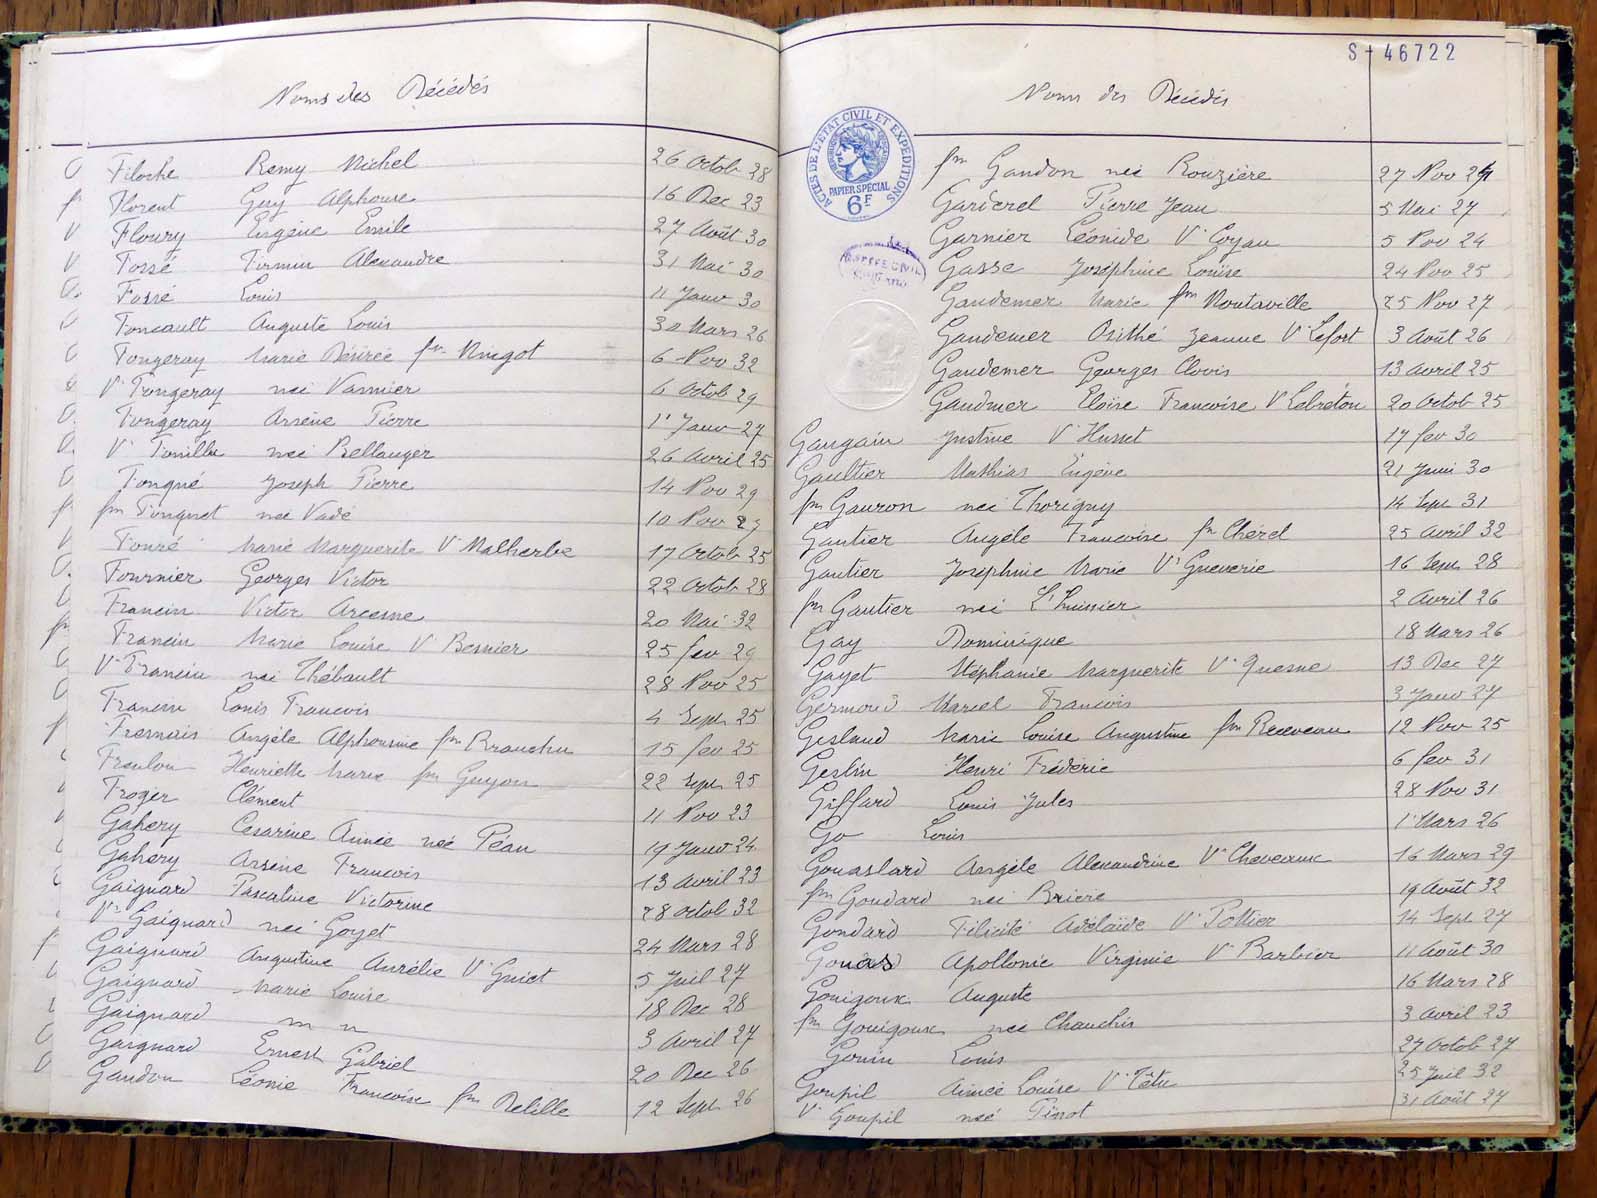 Noms des Décédés
Filoche Remy Michel 26 Octob 28
Florent Guy Alphonse 16 Dec 23
Floury Eugène Emile 27 Août 30
Fossé Firmin Alexandre 31 Mai 30
Fossé Louis 11 Janv 30
Foucault Auguste Louis 30 Mars 26
Fougeray Marie Désirée fm Mingot 6 Nov 32
Ve Fougeray née Vannier 6 Octob 29
Fougeray Arsène Pierre 1r Janv 27
Ve née Bellanger 26 Avril 25
Fougné Joseph Pierre 14 Nov 29
fm Fouquet née Vadé 10 Nov 29
Fouré Marie Marguerite Ve Malherbe 17 Octob 25
Fournier Georges Victor 22 Octob 28
Francin Victor Arcesne 20 Mai 32
Francin Marie Louise Ve Besnier 25 fev 29
Ve Francin née Thébault 28 Nov 25
Francin Louis Francois 4 Sept 25
Fresnais Angèle Alphonsine fm Branchu 15 fev 25
Froulon Henriette Marie fm Guyon 22 Sept 25
Froger Clément 11 Nov 23
Gahery Cesarine Aimée née Péan 19 Janv 24
Gahery Arsène Francois 13 Avril 23
Gaignard Pascaline Victorine 28 Octob 32
Ve Gaignard née Goyet 24 Mars 28
Gaignard Augustine Aurélie Ve Guiet 5 Juil 27
Gaignard Marie Louise 18 Dec 28
Gaignard m n 3 Avril 27
Gaignard Ernest Gabriel 20 Dec 26
Gandon Léonie Francoise fm Delille 12 Sept 26
S - 46722
Noms des Décédés
ACTES DE L'ETAT CIVIL ET EXPEDITIONS
PAPIER SPECIAL
6F
fm Gandon née Rouzière 27 Nov 24
Garderel Pierre Jean 5 Mai 27
Garnier Léonide Ve Coyau 5 Nov 24
Gasse Joséphine Louise 24 Nov 25
Gaudemer Marie fm Moutaville 25 Nov 27
Gaudemer Osithé Jeanne Ve Lefort 3 Août 26
Gaudemer Georges Clovis 13 Avril 25
Gaudmer Eloïse Francoise Ve Lebréton 20 Octob 25
Gaugain Justine Ve Husset 17 fev 30
Gaultier Mathias Eugène 21 Juin 30
fm Gauron née Thorigny 14 Sept 31
Gautier Angèle Francoise fm Chérel 25 Avril 32
Gautier Joséphine Marie Ve Gueverie 16 Sept 28
fm Gautier née L'huissier 2 Avril 26
Gay Dominique 18 Mars 26
Gayet Stéphanie Marguerite Ve Quesne 13 Dec 27
Germond Marcel Francois 3 Janv 27
Gesland Marie Louise Augustine fm Receveau 12 Nov 25
Geslin Henri Frédéric 6 fev 31
Giffard Louis Jules 28 Nov 31
Go Louis 1r Mars 26
Gouaslard Angèle Alexandrine Ve Cheveaux 16 Mars 29
fm Goudard née Brière 19 Août 32
Goudard Félicité Adélaïde Ve Pottier 14 Sept 27
Gouas Apollonie Virginie Ve Barbier 11 Août 30
Gouigoux Auguste 16 Mars 28
fm Gouigoux née Chauchis 3 Avril 23
Gouin Louis 27 Octob 27
Goupil Aimée Louise Ve Têtu 25 Juil 32
Ve Goupil née Pinot 31 Août 27